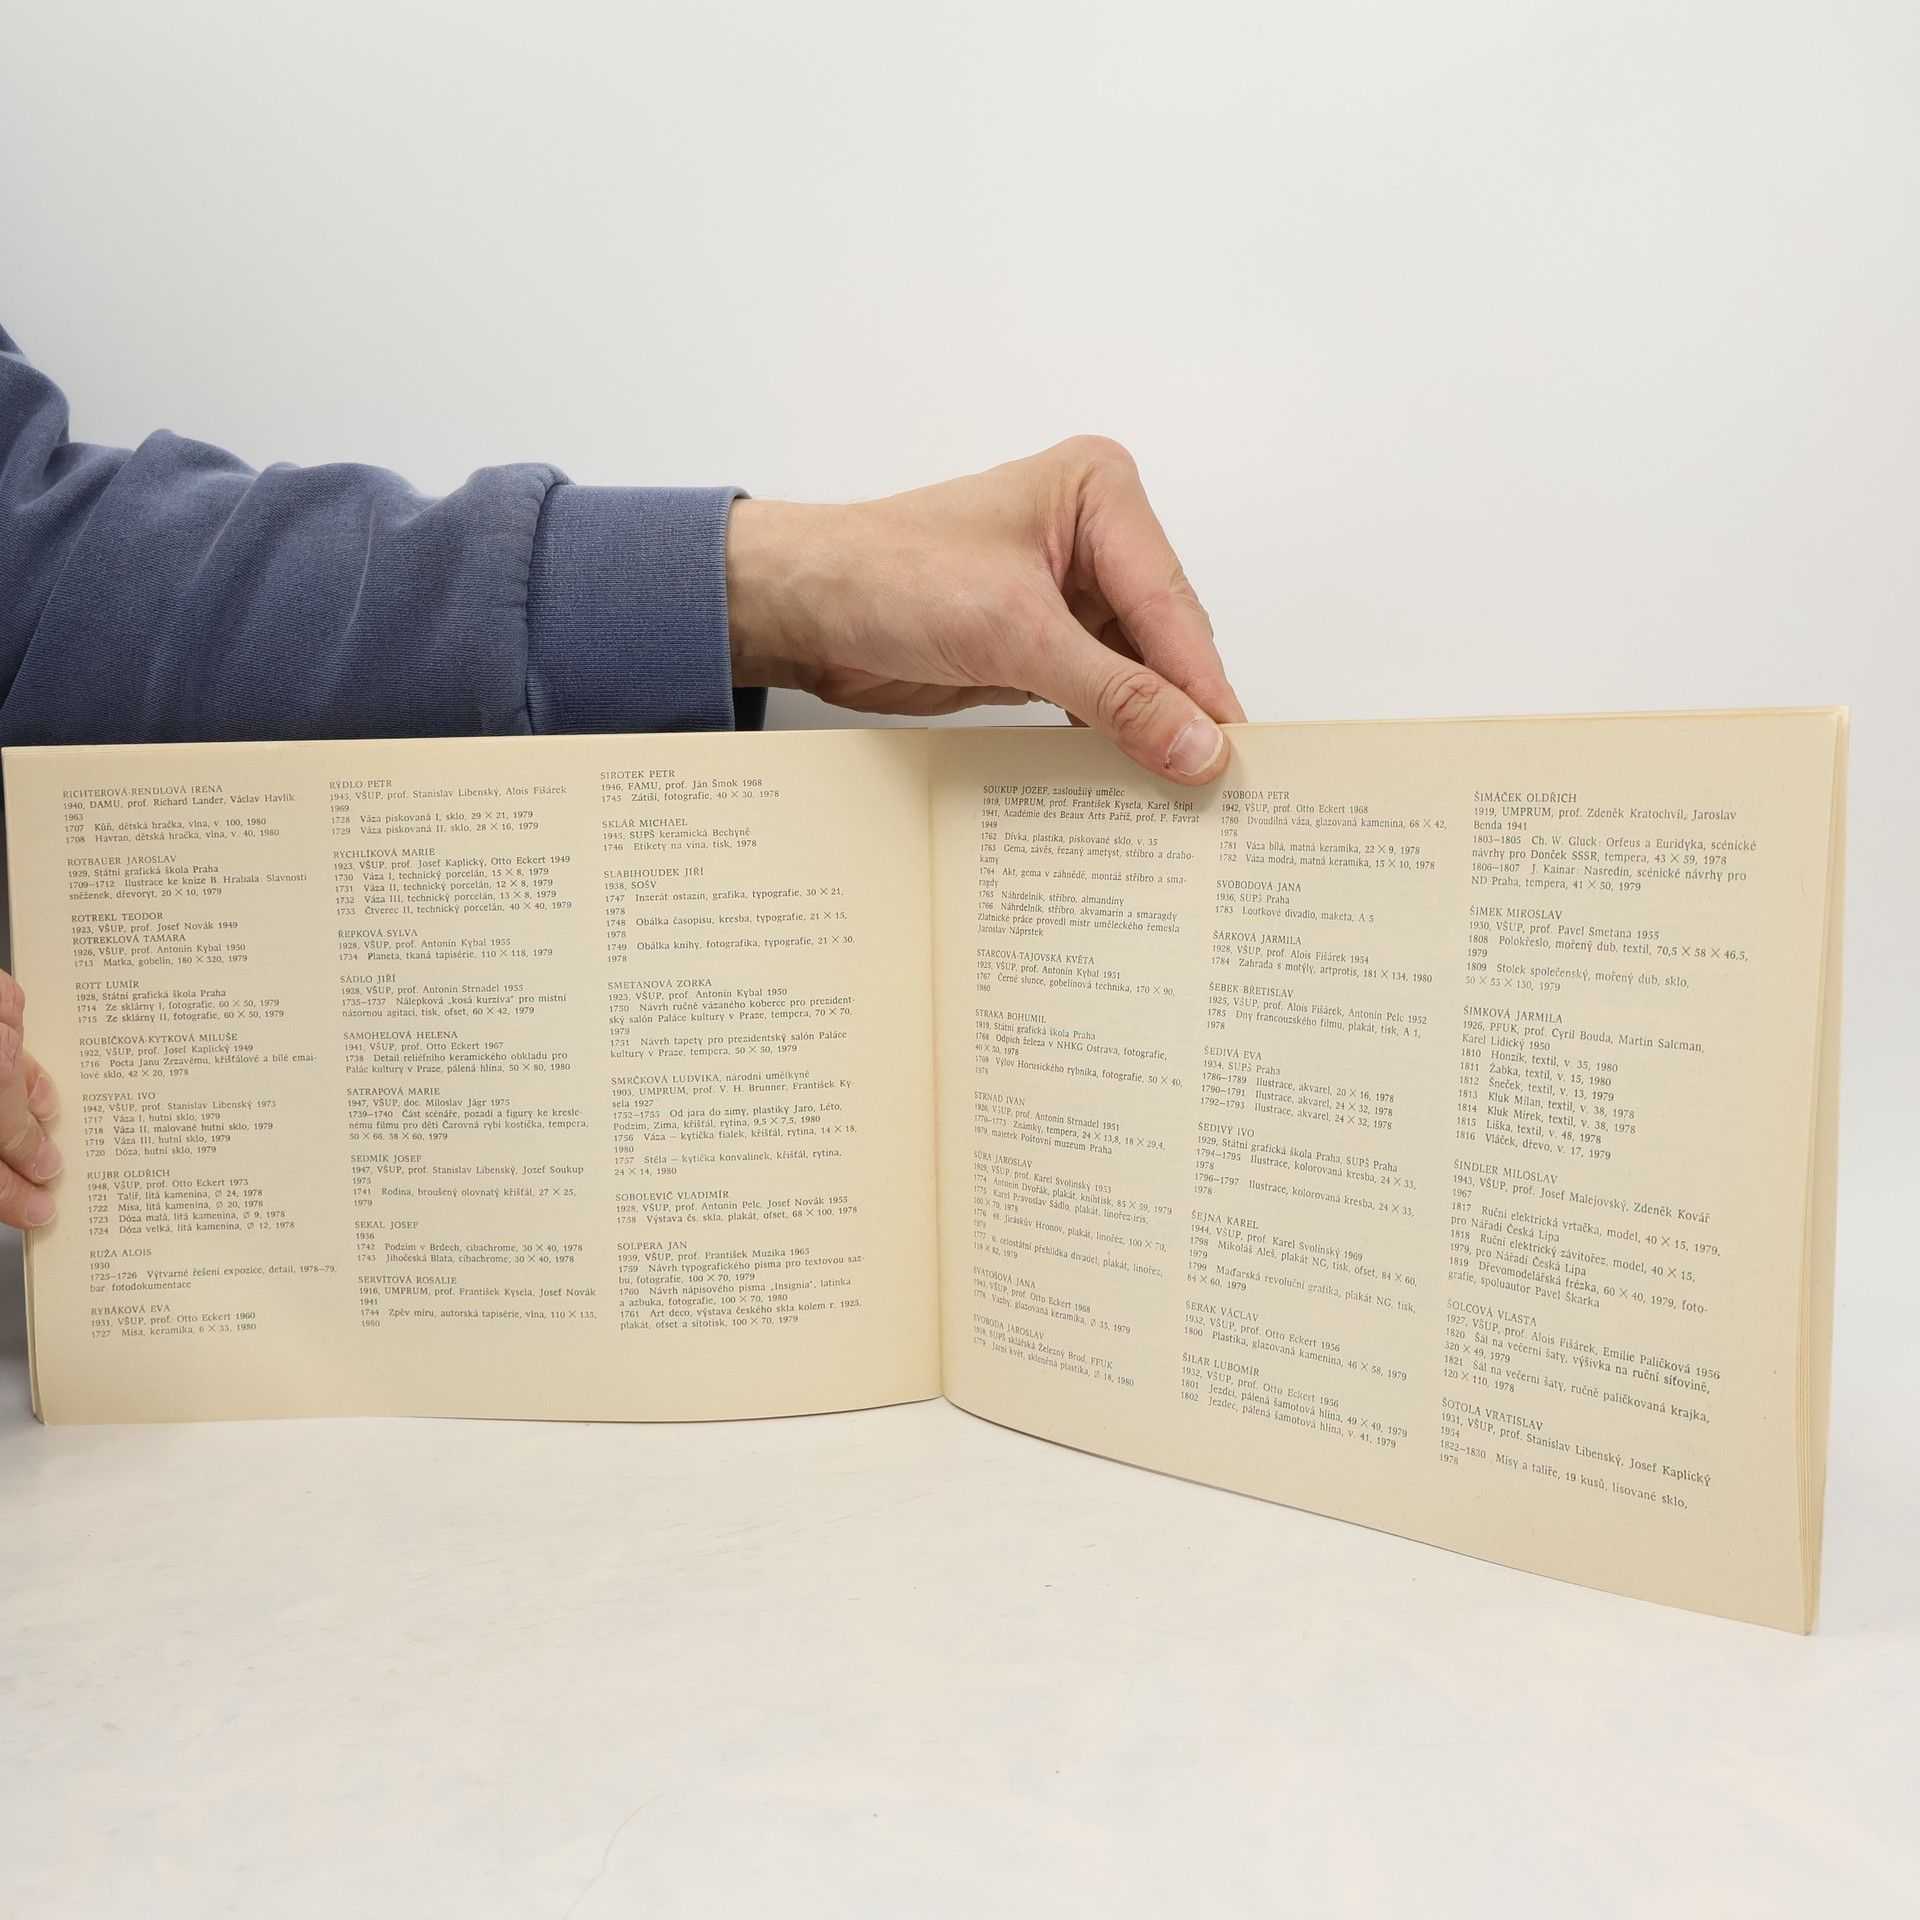 RICHTEROVÁ-RENDLOVÁ IRENA
1940, DAMU, prof. Richard Lander, Václav Havlík
1963
1707 Kůň, dětská hračka, vlna, v. 100, 1980
1708 Havran, dětská hračka, vlna, v. 40, 1980
ROTBAUER JAROSLAV
1929, Státní grafická škola Praha
1709–1712 Ilustrace ke knize B. Hrabala: Slavnosti
sněženek, dřevoryt, 20 × 10, 1979
ROTREKL TEODOR
1923, VŠUP, prof. Josef Novák 1949
ROTREKLOVÁ TAMARA
1926, VŠUP, prof. Antonín Kybal 1950
1713 Matka, gobelín, 180 × 320, 1979
ROTT LUMÍR
1928, Státní grafická škola Praha
1714 Ze sklárny I, fotografie, 60 × 50, 1979
1715 Ze sklárny II, fotografie, 60 × 50, 1979
ROUBÍČKOVÁ-KYTKOVÁ MILUŠE
1922, VŠUP, prof. Josef Kaplický 1949
1716 Pocta Janu Zrzavému, křišťálové a bílé emai-
lové sklo, 42 × 20, 1978
ROZSYPAL IVO
1942, VŠUP, prof. Stanislav Libenský 1973
1717 Váza I, hutní sklo, 1979
1718 Váza II, malované hutní sklo, 1979
1719 Váza III, hutní sklo, 1979
1720 Dóza, hutní sklo, 1979
RUJBR OLDŘICH
1948, VŠUP, prof. Otto Eckert 1973
1721 Talíř, litá kamenina, ∅ 24, 1978
1722 Mísa, litá kamenina, ∅ 20, 1978
1723 Dóza malá, litá kamenina, ∅ 9, 1978
1724 Dóza velká, litá kamenina, ∅ 12, 1978
RUŽA ALOIS
1930
1725–1726 Výtvarné řešení expozice, detail, 1978–79,
bar. fotodokumentace
RYBÁKOVÁ EVA
1931, VŠUP, prof. Otto Eckert 1960
1727 Mísa, keramika, 6 × 33, 1980
RÝDLO PETR
1945, VŠUP, prof. Stanislav Libenský, Alois Fišárek
1969
1728 Váza pískovaná I, sklo, 29 × 21, 1979
1729 Váza pískovaná II, sklo, 28 × 16, 1979
RYCHLÍKOVÁ MARIE
1923, VŠUP, prof. Josef Kaplický, Otto Eckert 1949
1730 Váza I, technický porcelán, 15 × 8, 1979
1731 Váza II, technický porcelán, 12 × 8, 1979
1732 Váza III, technický porcelán, 13 × 8, 1979
1733 Čtverec II, technický porcelán, 40 × 40, 1979
ŘEPKOVÁ SYLVA
1928, VŠUP, prof. Antonín Kybal 1955
1734 Planeta, tkaná tapisérie, 110 × 118, 1979
SÁDLO JIŘÍ
1928, VŠUP, prof. Antonín Strnadel 1955
1735–1737 Nálepková „kosá kurzíva" pro místní
názornou agitaci, tisk, ofset, 60 × 42, 1979
SAMOHELOVÁ HELENA
1941, VŠUP, prof. Otto Eckert 1967
1738 Detail reliéfního keramického obkladu pro
Palác kultury v Praze, pálená hlína, 50 × 80, 1980
SATRAPOVÁ MARIE
1947, VŠUP, doc. Miloslav Jágr 1975
1739–1740 Část scénáře, pozadí a figury ke kresle-
nému filmu pro děti Čarovná rybí kostička, tempera,
50 × 66, 38 × 60, 1979
SEDMÍK JOSEF
1947, VŠUP, prof. Stanislav Libenský, Jozef Soukup
1975
1741 Rodina, broušený olovnatý křišťál, 27 × 25,
1979
SEKAL JOSEF
1936
1742 Podzim v Brdech, cibachrome, 30 × 40, 1978
1743 Jihočeská Blata, cibachrome, 30 × 40, 1978
SERVÍTOVÁ ROSALIE
1916, UMPRUM, prof. František Kysela, Josef Novák
1941
1744 Zpěv míru, autorská tapisérie, vlna, 110 × 135,
1980
SIROTEK PETR
1946, FAMU, prof. Ján Šmok 1968
1745 Zátiší, fotografie, 40 × 30, 1978
SKLÁŘ MICHAEL
1945, SUPŠ keramická Bechyně
1746 Etikety na vína, tisk, 1978
SLABIHOUDEK JIŘÍ
1938, SOŠV
1747 Inzerát ostazin, grafika, typografie, 30 × 21,
1978
1748 Obálka časopisu, kresba, typografie, 21 × 15,
1978
1749 Obálka knihy, fotografika, typografie, 21 × 30,
1978
SMETANOVÁ ZORKA
1923, VŠUP, prof. Antonín Kybal 1950
1750 Návrh ručně vázaného koberce pro prezident-
ský salón Paláce kultury v Praze, tempera, 70 × 70,
1979
1751 Návrh tapety pro prezidentský salón Paláce
kultury v Praze, tempera, 50 × 50, 1979
SMRČKOVÁ LUDVIKA, národní umělkyně
1903, UMPRUM, prof. V. H. Brunner, František Ky-
sela 1927
1752–1755 Od jara do zimy, plastiky Jaro, Léto,
Podzim, Zima, křišťál, rytina, 9,5 × 7,5, 1980
1756 Váza – kytička fialek, křišťál, rytina, 14 × 18,
1980
1757 Stéla – kytička konvalinek, křišťál, rytina,
24 × 14, 1980
SOBOLEVIČ VLADIMÍR
1928, VŠUP, prof. Antonín Pelc, Josef Novák 1955
1758 Výstava čs. skla, plakát, ofset, 68 × 100, 1978
SOLPERA JAN
1939, VŠUP, prof. František Muzika 1965
1759 Návrh typografického písma pro textovou saz-
bu, fotografie, 100 × 70, 1979
1760 Návrh nápisového písma „Insignia", latinka
a azbuka, fotografie, 100 × 70, 1980
1761 Art deco, výstava českého skla kolem r. 1925,
plakát, ofset a sítotisk, 100 × 70, 1979
SOUKUP JOZEF, zasloužilý umělec
1919, UMPRUM, prof. František Kysela, Karel Štipl
1941, Académie des Beaux Arts Paříž, prof. F. Favrat
1949
1762 Dívka, plastika, pískované sklo, v. 35
1763 Gema, závěs, řezaný ametyst, stříbro a draho-
kamy
1764 Akt, gema v záhnědě, montáž stříbro a sma-
ragdy
1765 Náhrdelník, stříbro, almandiny
1766 Náhrdelník, stříbro, akvamarin a smaragdy
Zlatnické práce provedl mistr uměleckého řemesla
Jaroslav Náprstek
STARCOVÁ-TAJOVSKÁ KVĚTA
1925, VŠUP, prof. Antonín Kybal 1951
1767 Černé slunce, gobelínová technika, 170 × 90,
1980
STRAKA BOHUMIL
1919, Státní grafická škola Praha
1768 Odpich železa v NHKG Ostrava, fotografie,
40 × 50, 1978
1769 Výlov Horusického rybníka, fotografie, 50 × 40,
1978
STRNAD IVAN
1926, VŠUP, prof. Antonín Strnadel 1951
1770–1773 Známky, tempera, 24 × 13,8, 18 × 29,4,
1979, majetek Poštovní muzeum Praha
SŮRA JAROSLAV
1929, VŠUP, prof. Karel Svolinský 1953
1774 Antonín Dvořák, plakát, knihtisk, 85 × 59, 1979
1775 Karel Pravoslav Sádlo, plakát, linořez-iris,
100 × 70, 1978
1776 48. Jiráskův Hronov, plakát, linořez, 100 × 70,
1978
1777 6. celostátní přehlídka divadel, plakát, linořez,
119 × 82, 1979
SVATOŠOVÁ JANA
1943, VŠUP, prof. Otto Eckert 1968
1778 Vazby, glazovaná keramika, ∅ 35, 1979
SVOBODA JAROSLAV
1938, SUPŠ sklářská Železný Brod, FFUK
1779 Jarní květ, skleněná plastika, ∅ 18, 1980
SVOBODA PETR
1942, VŠUP, prof. Otto Eckert 1968
1780 Dvoudílná váza, glazovaná kamenina, 68 × 42,
1978
1781 Váza bílá, matná keramika, 22 × 9, 1978
1782 Váza modrá, matná keramika, 15 × 10, 1978
SVOBODOVÁ JANA
1936, SUPŠ Praha
1783 Loutkové divadlo, maketa, A 5
ŠÁRKOVÁ JARMILA
1928, VŠUP, prof. Alois Fišárek 1954
1784 Zahrada s motýly, artprotis, 181 × 134, 1980
ŠEBEK BŘETISLAV
1925, VŠUP, prof. Alois Fišárek, Antonín Pelc 1952
1785 Dny francouzského filmu, plakát, tisk, A 1,
1978
ŠEDIVÁ EVA
1934, SUPŠ Praha
1786–1789 Ilustrace, akvarel, 20 × 16, 1978
1790–1791 Ilustrace, akvarel, 24 × 32, 1978
1792–1793 Ilustrace, akvarel, 24 × 32, 1978
ŠEDIVÝ IVO
1929, Státní grafická škola Praha, SUPŠ Praha
1794–1795 Ilustrace, kolorovaná kresba, 24 × 33,
1978
1796–1797 Ilustrace, kolorovaná kresba, 24 × 33,
1978
ŠEJNA KAREL
1944, VŠUP, prof. Karel Svolinský 1969
1798 Mikoláš Aleš, plakát NG, tisk, ofset, 84 × 60,
1979
1799 Maďarská revoluční grafika, plakát NG, tisk,
84 × 60, 1979
ŠERÁK VÁCLAV
1932, VŠUP, prof. Otto Eckert 1956
1800 Plastika, glazovaná kamenina, 46 × 58, 1979
ŠILAR LUBOMÍR
1932, VŠUP, prof. Otto Eckert 1956
1801 Jezdci, pálená šamotová hlína, 49 × 49, 1979
1802 Jezdec, pálená šamotová hlína, v. 41, 1979
ŠIMÁČEK OLDŘICH
1919, UMPRUM, prof. Zdeněk Kratochvíl, Jaroslav
Benda 1941
1803–1805 Ch. W. Gluck: Orfeus a Euridyka, scénické
návrhy pro Donček SSSR, tempera, 43 × 59, 1978
1806–1807 J. Kainar: Nasredin, scénické návrhy pro
ND Praha, tempera, 41 × 50, 1979
ŠIMEK MIROSLAV
1930, VŠUP, prof. Pavel Smetana 1955
1808 Polokřeslo, mořený dub, textil, 70,5 × 58 × 46,5,
1979
1809 Stolek společenský, mořený dub, sklo,
50 × 55 × 130, 1979
ŠIMKOVÁ JARMILA
1926, PFUK, prof. Cyril Bouda, Martin Salcman,
Karel Lidický 1950
1810 Honzík, textil, v. 35, 1980
1811 Žabka, textil, v. 15, 1980
1812 Šneček, textil, v. 13, 1979
1813 Kluk Milan, textil, v. 38, 1978
1814 Kluk Mirek, textil, v. 38, 1978
1815 Liška, textil, v. 48, 1978
1816 Vláček, dřevo, v. 17, 1979
ŠINDLER MILOSLAV
1943, VŠUP, prof. Josef Malejovský, Zdeněk Kovář
1967
1817 Ruční elektrická vrtačka, model, 40 × 15, 1979,
pro Nářadí Česká Lípa
1818 Ruční elektrický závitořez, model, 40 × 15,
1979, pro Nářadí Česká Lípa
1819 Dřevomodelářská frézka, 60 × 40, 1979, foto-
grafie, spoluautor Pavel Škarka
ŠOLCOVÁ VLASTA
1927, VŠUP, prof. Alois Fišárek, Emilie Paličková 1956
1820 Šál na večerní šaty, výšivka na ruční síťovině,
320 × 49, 1979
1821 Šál na večerní šaty, ručně paličkovaná krajka,
120 × 110, 1978
ŠOTOLA VRATISLAV
1931, VŠUP, prof. Stanislav Libenský, Josef Kaplický
1954
1822–1830 Mísy a talíře, 19 kusů, lisované sklo,
1978